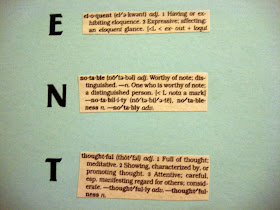 E
el·o·quent (el′ə kwənt) adj. 1 Having or ex-
hibiting eloquence. 2 Expressive; affecting:
an eloquent glance. [<L < ex- out + loqui
N
no·ta·ble (nō′tə·bəl) adj. Worthy of note; dis-
tinguished. —n. One who is worthy of note;
a distinguished person. [< L nota a mark]
—no·ta·bil·i·ty (nō′tə·bil′ə·tē), no′ta·ble-
ness n. —no′ta·bly adv.
T
thought·ful (thôt′fəl) adj. 1 Full of thought;
meditative. 2 Showing, characterized by, or
promoting thought. 3 Attentive; careful,
esp. manifesting regard for others; consid-
erate. —thought′ful·ly adv. —thought′ful-
ness n.